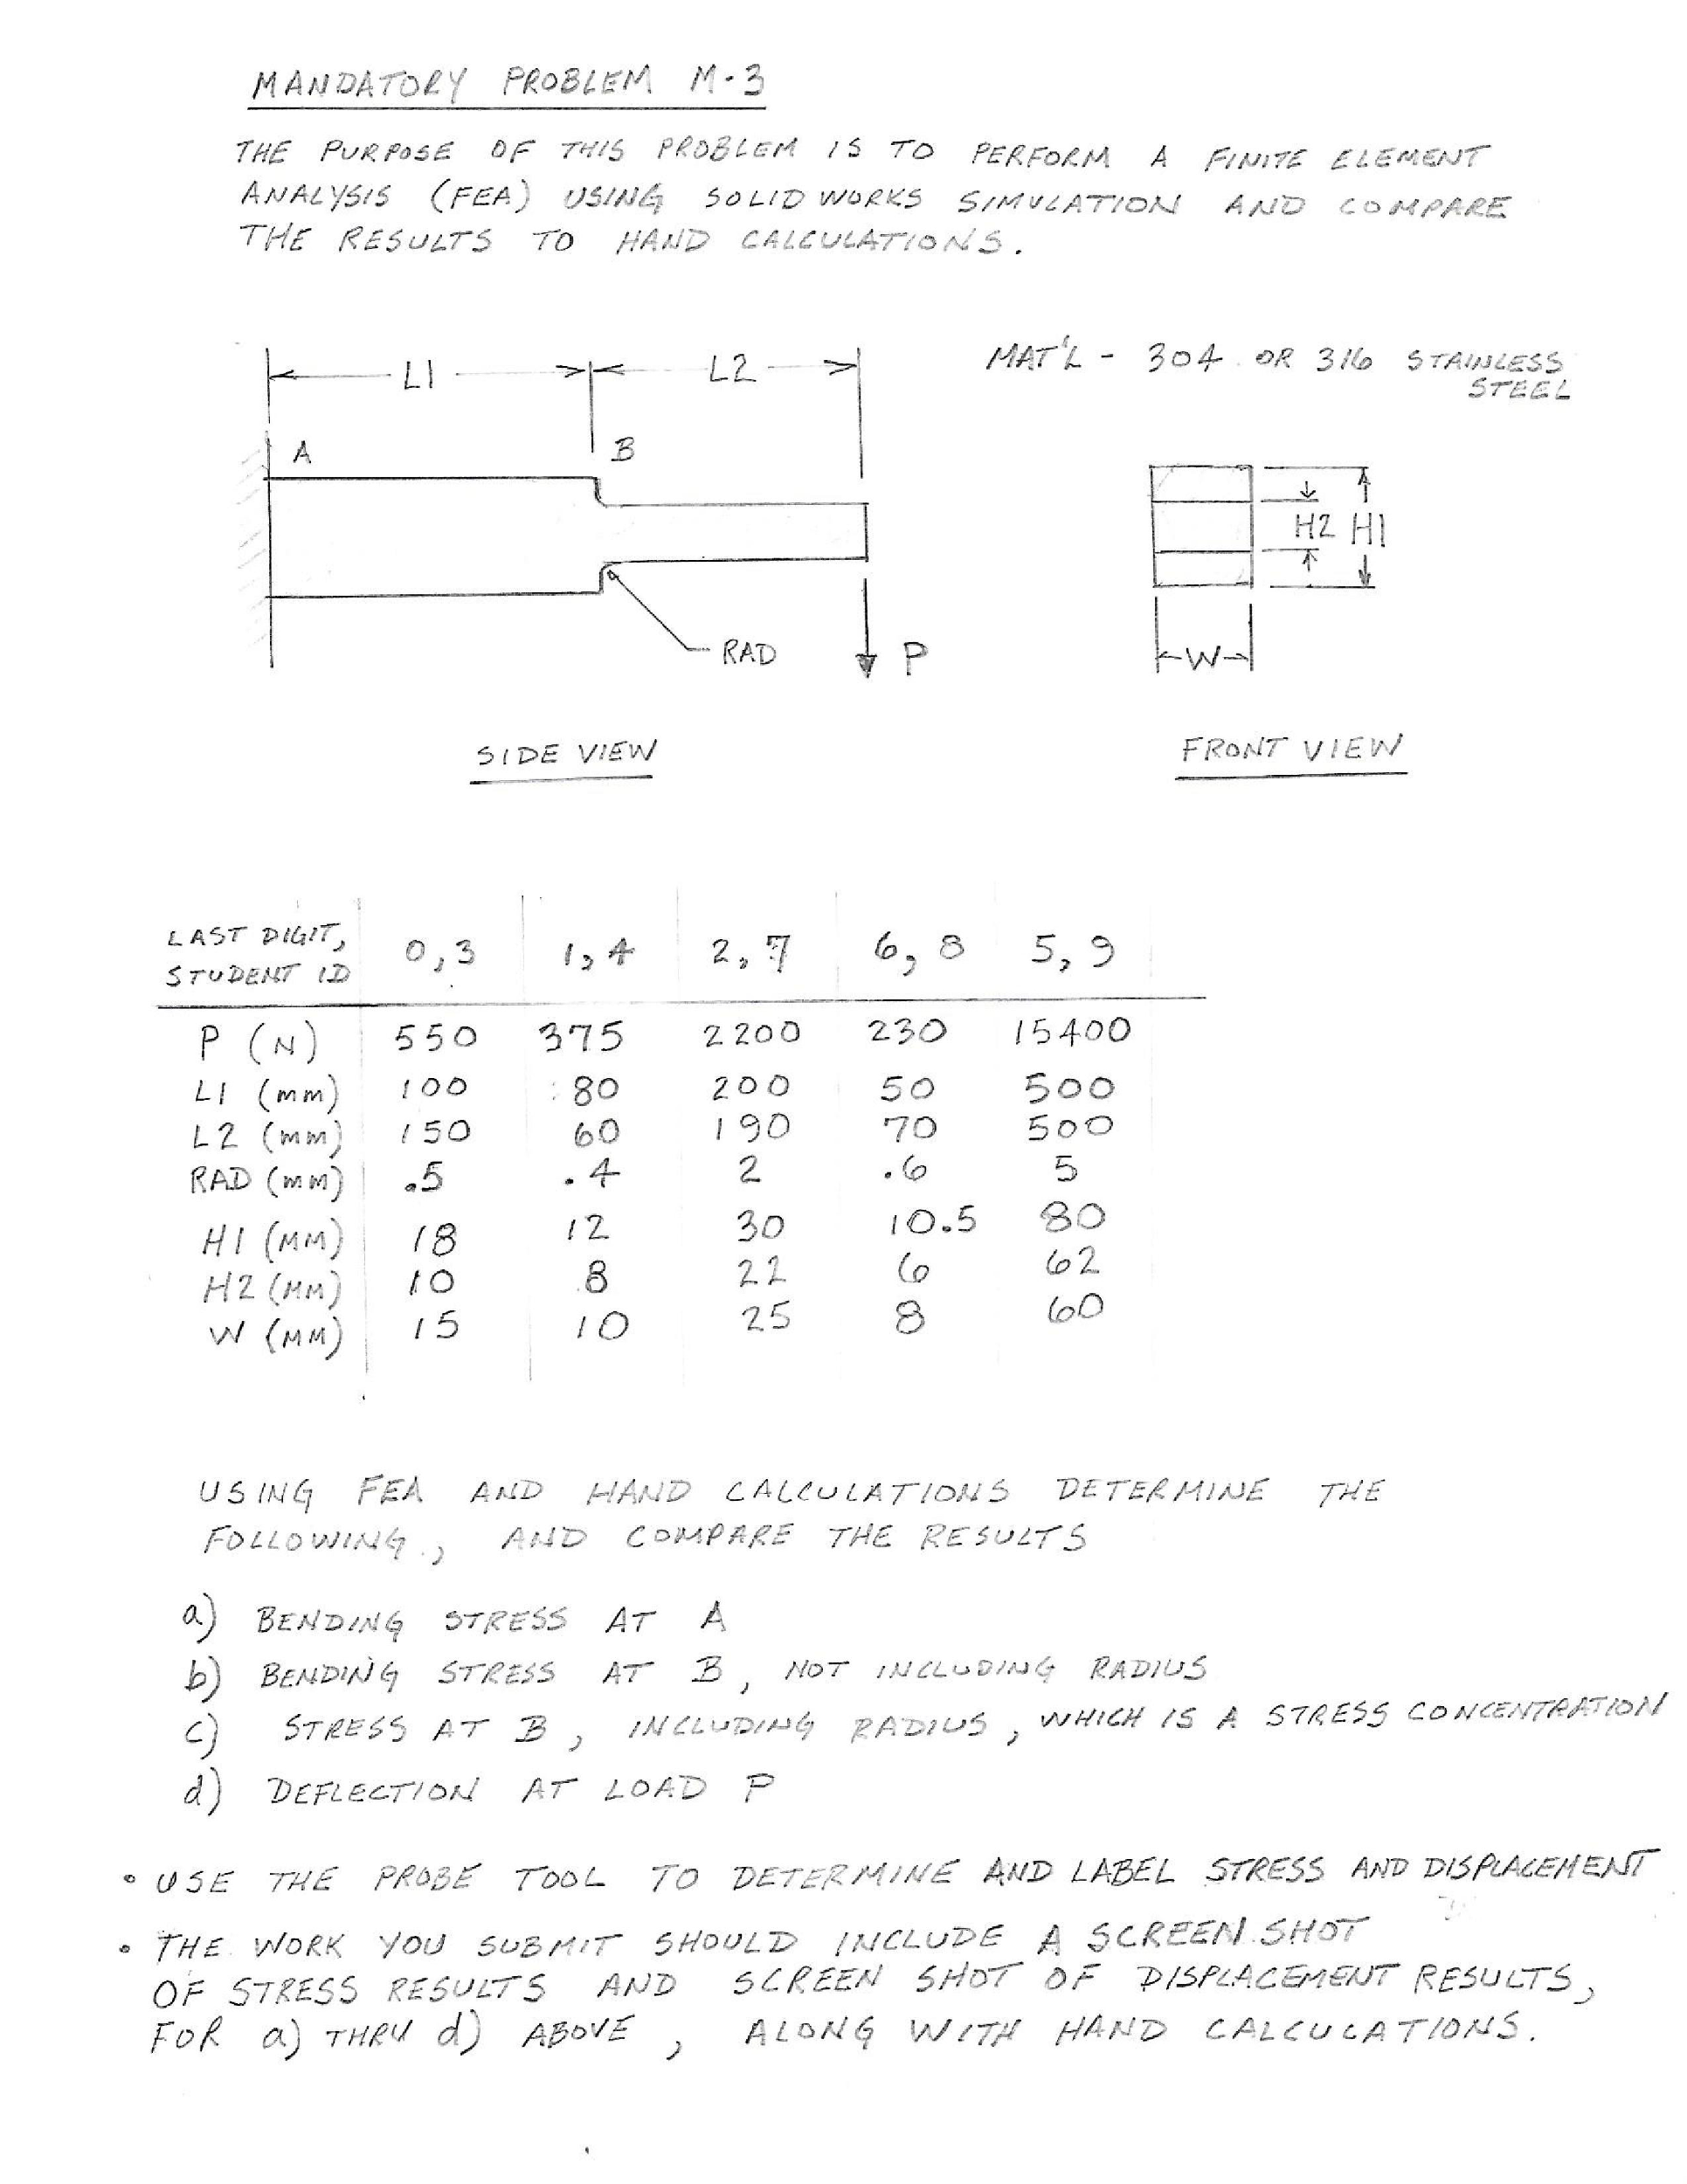 MANDATORY PROBLEM M-3
THE PURPOSE OF THIS PROBLEM IS TO PERFORM A FINITE ELEMENT
ANALYSIS (FEA) USING SOLID WORKS SIMULATION AND COMPARE
THE RESULTS TO HAND CALCULATIONS.
L1 L2
MAT'L - 304 OR 316 STAINLESS
STEEL
A B
H2 H1
RAD P W
SIDE VIEW FRONT VIEW
LAST DIGIT, STUDENT ID 0,3 1,4 2,7 6,8 5,9
P (N) 550 375 2200 230 15400
L1 (mm) 100 80 200 50 500
L2 (mm) 150 60 190 70 500
RAD (mm) .5 .4 2 .6 5
H1 (MM) 18 12 30 10.5 80
H2 (MM) 10 8 22 6 62
W (MM) 15 10 25 8 60
USING FEA AND HAND CALCULATIONS DETERMINE THE
FOLLOWING, AND COMPARE THE RESULTS
a) BENDING STRESS AT A
b) BENDING STRESS AT B, NOT INCLUDING RADIUS
c) STRESS AT B, INCLUDING RADIUS, WHICH IS A STRESS CONCENTRATION
d) DEFLECTION AT LOAD P
• USE THE PROBE TOOL TO DETERMINE AND LABEL STRESS AND DISPLACEMENT
• THE WORK YOU SUBMIT SHOULD INCLUDE A SCREEN SHOT
OF STRESS RESULTS AND SCREEN SHOT OF DISPLACEMENT RESULTS,
FOR a) THRU d) ABOVE, ALONG WITH HAND CALCULATIONS.